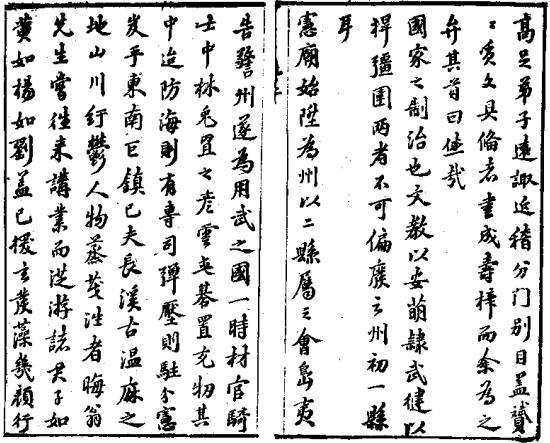 高足弟子遠諏近稽分门別目盖贇
〻质文具備者書成壽梓而余為之
弁其首曰偉哉
國家之制治也文教以安萌隷武健以
捍疆圉两者不可偏廢云州初一縣
耳
憲廟始陞為州以二縣屬之會島夷
告警州遂為用武之國一時材官騎
士中林兎罝之彦雲屯碁置充牣其
中迨防海則有專司彈壓則駐分憲
岌乎東南巨鎮已夫長溪古温麻之
地山川紆鬱人物蕃茂往者晦翁
先生嘗徃来講業而從游諸君子如
黄如楊如劉盖已援玄發藻幾顏行